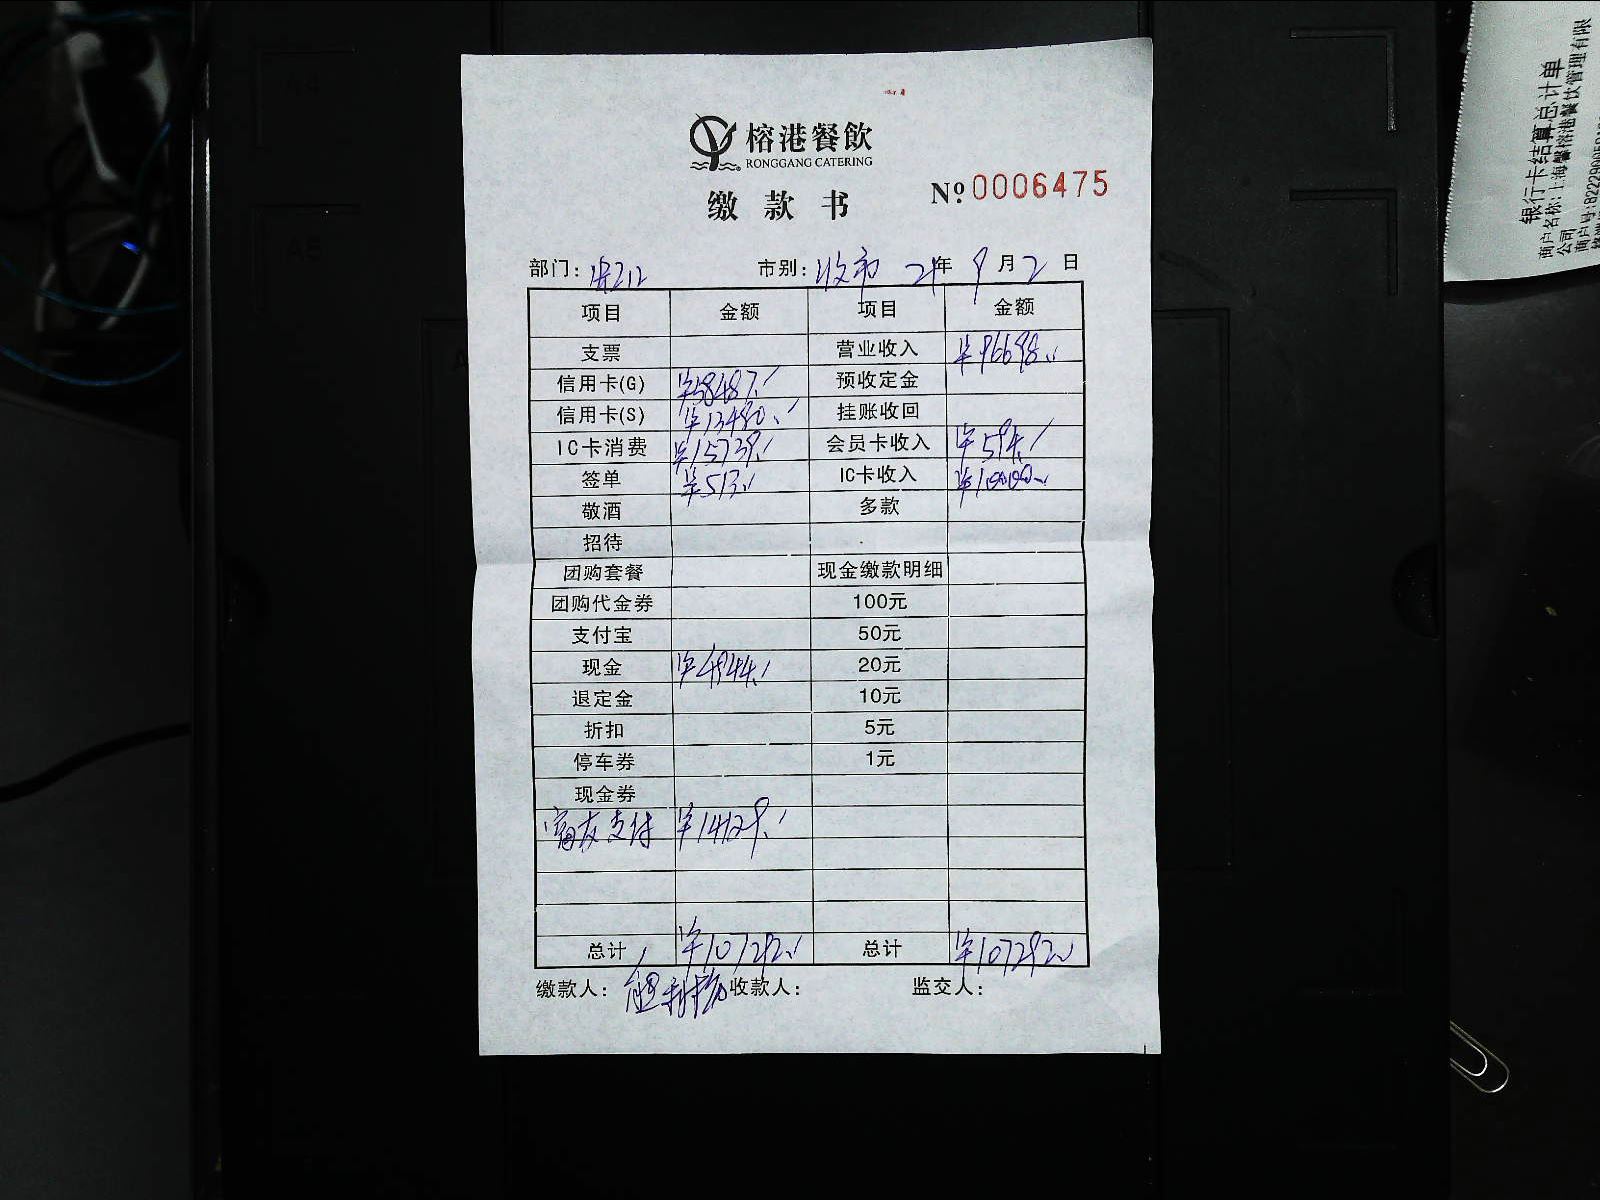 榕港餐飲
RONGGANG CATERING
缴款书 №0006475
部门: 市别:收市 21年 9月 2日
项目 金额 项目 金额
支票 营业收入 ¥96698.
信用卡(G) ¥58487. 预收定金
信用卡(S) ¥13480. 挂账收回
IC卡消费 ¥15739. 会员卡收入 ¥594.
签单 ¥513. IC卡收入 ¥10000.
敬酒 多款
招待
团购套餐 现金缴款明细
团购代金券 100元
支付宝 50元
现金 ¥4944. 20元
退定金 10元
折扣 5元
停车券 1元
现金券
支付 ¥14129.
总计 ¥107292. 总计 ¥107292.
缴款人: 收款人: 监交人:
银行卡结算总计单
商户名称:上海馨榕港餐饮管理有限
公司
商户号: